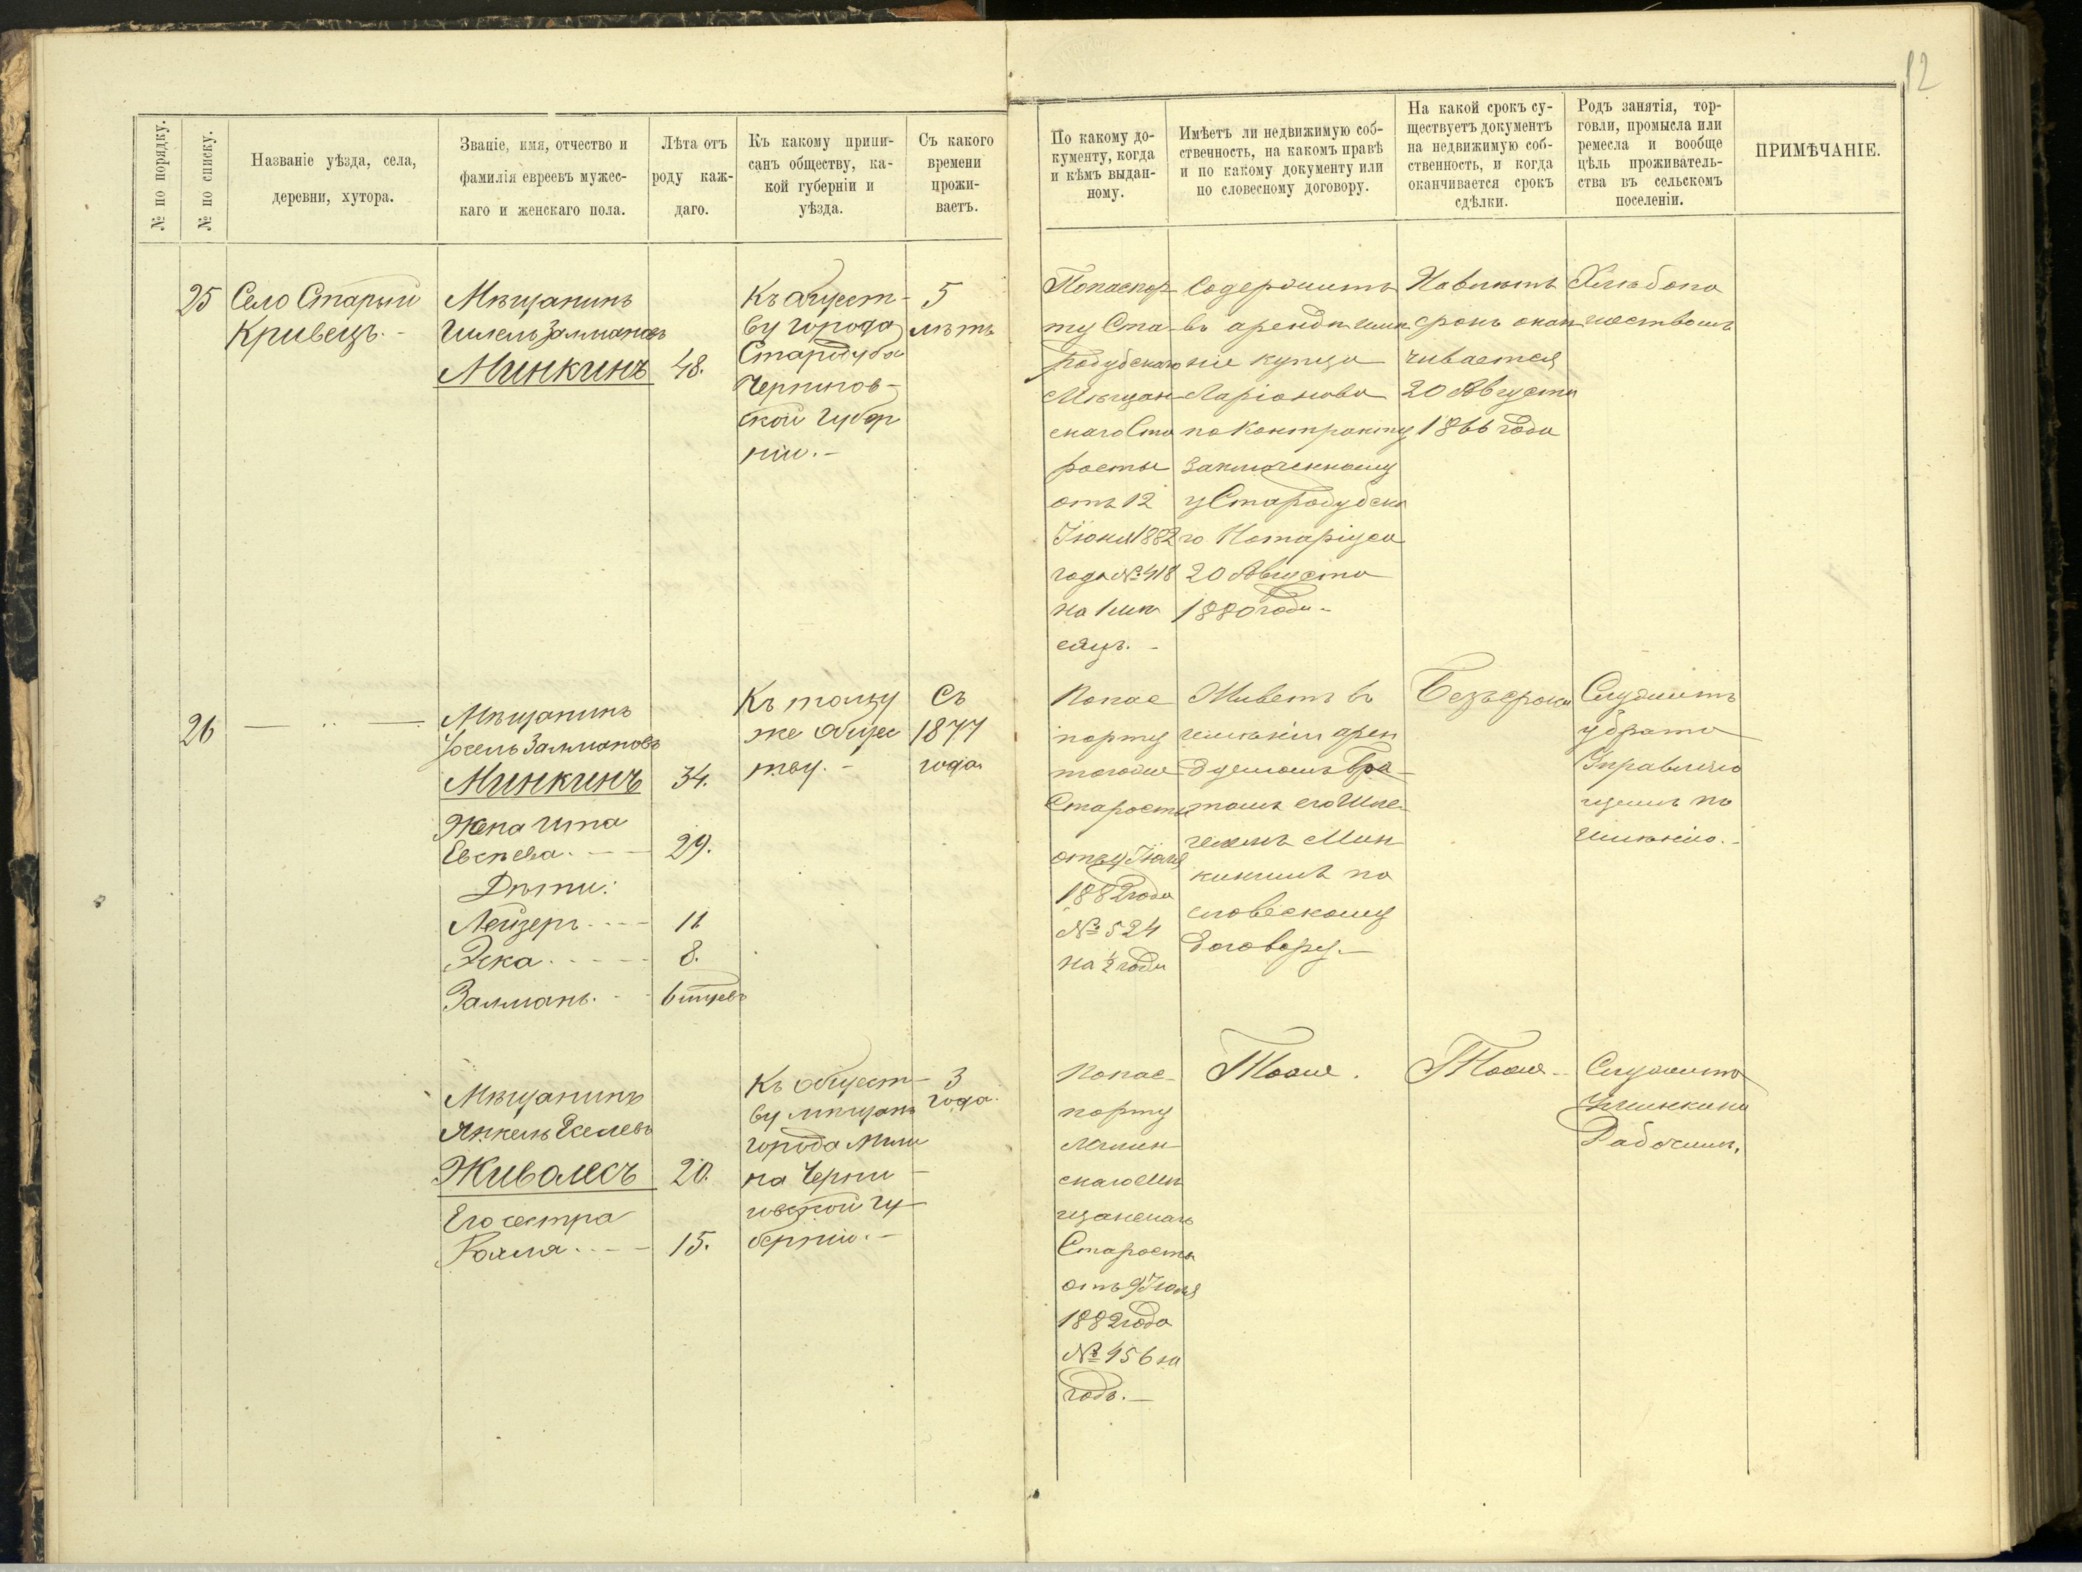 12
№ по порядку.
№ по списку.
Названіе уѣзда, села,
деревни, хутора.
Званіе, имя, отчество и
фамилія евреевъ мужес-
каго и женскаго пола.
Лѣта отъ
роду каж-
даго.
Къ какому припи-
санъ обществу, ка-
кой губерніи и
уѣзда.
Съ какого
времени
прожи-
ваетъ.
По какому до-
кументу, когда
и кѣмъ выдан-
ному.
Имѣетъ ли недвижимую соб-
ственность, на какомъ правѣ
и по какому документу или
по словесному договору.
На какой срокъ су-
ществуетъ документъ
на недвижимую соб-
ственность, и когда
оканчивается срокъ
сдѣлки.
Родъ занятія, тор-
говли, промысла или
ремесла и вообще
цѣль проживатель-
ства въ сельскомъ
поселеніи.
ПРИМѢЧАНІЕ.
25
Село Старый
Кривецъ.-
Мѣщанинъ
Гилель Залмановъ
Минкинъ
48.
Къ общест-
ву города
Стародуба
Чернигов-
ской Губер
ніи.-
5
лѣтъ
По паспор-
ту Ста-
родубскаго
Мѣщан-
скаго Ста
росты
отъ 12
Іюня 1882
года № 418
на 1 мѣ
сяцъ.-
Содержитъ
въ арендѣ имѣ
ніе купца
Ларіонова
по контракту
заключенному
у Стародубска
го Нотаріуса
20 Августа
1880 года-
На 6 лѣтъ
срокъ окан
чивается
20 Августа
1886 года
Хлѣбопа
шествомъ
26
— " —
Мѣщанинъ
Іосель Залмановъ
Минкинъ
34.
Жена Ита
Евсѣева.
29.
Дѣти:
Лейзеръ
11
Эска
8.
Залманъ.
6 мѣсяцевъ
Къ тому
же общес
тву.-
Съ
1877
года
По пас
порту
тогоже
Старосты
Іюля
1882 года
№ 524
на ½ года
Живетъ въ
имѣніи арен
дуемомъ Бра-
томъ его Ги-
лемъ Мин
кинымъ по
словесному
договору.-
Безъ срока
Служитъ
у брата
Управляю
щимъ по
имѣнію.-
Мѣщанинъ
Янкель Еселевъ
Живалесъ
20.
Его сестра
15.
Къ общест-
ву мѣщанъ
города Мгли
на Черни-
говской Гу-
берніи.-
3
года.
По пас-
порту
Мглин-
скаго Мѣ
щанскаго
Старосты
отъ 9 Іюля
1882 года
№ 456 на
годъ.-
Тоже.
Тоже-
Служитъ
у Минкина
Рабочимъ.